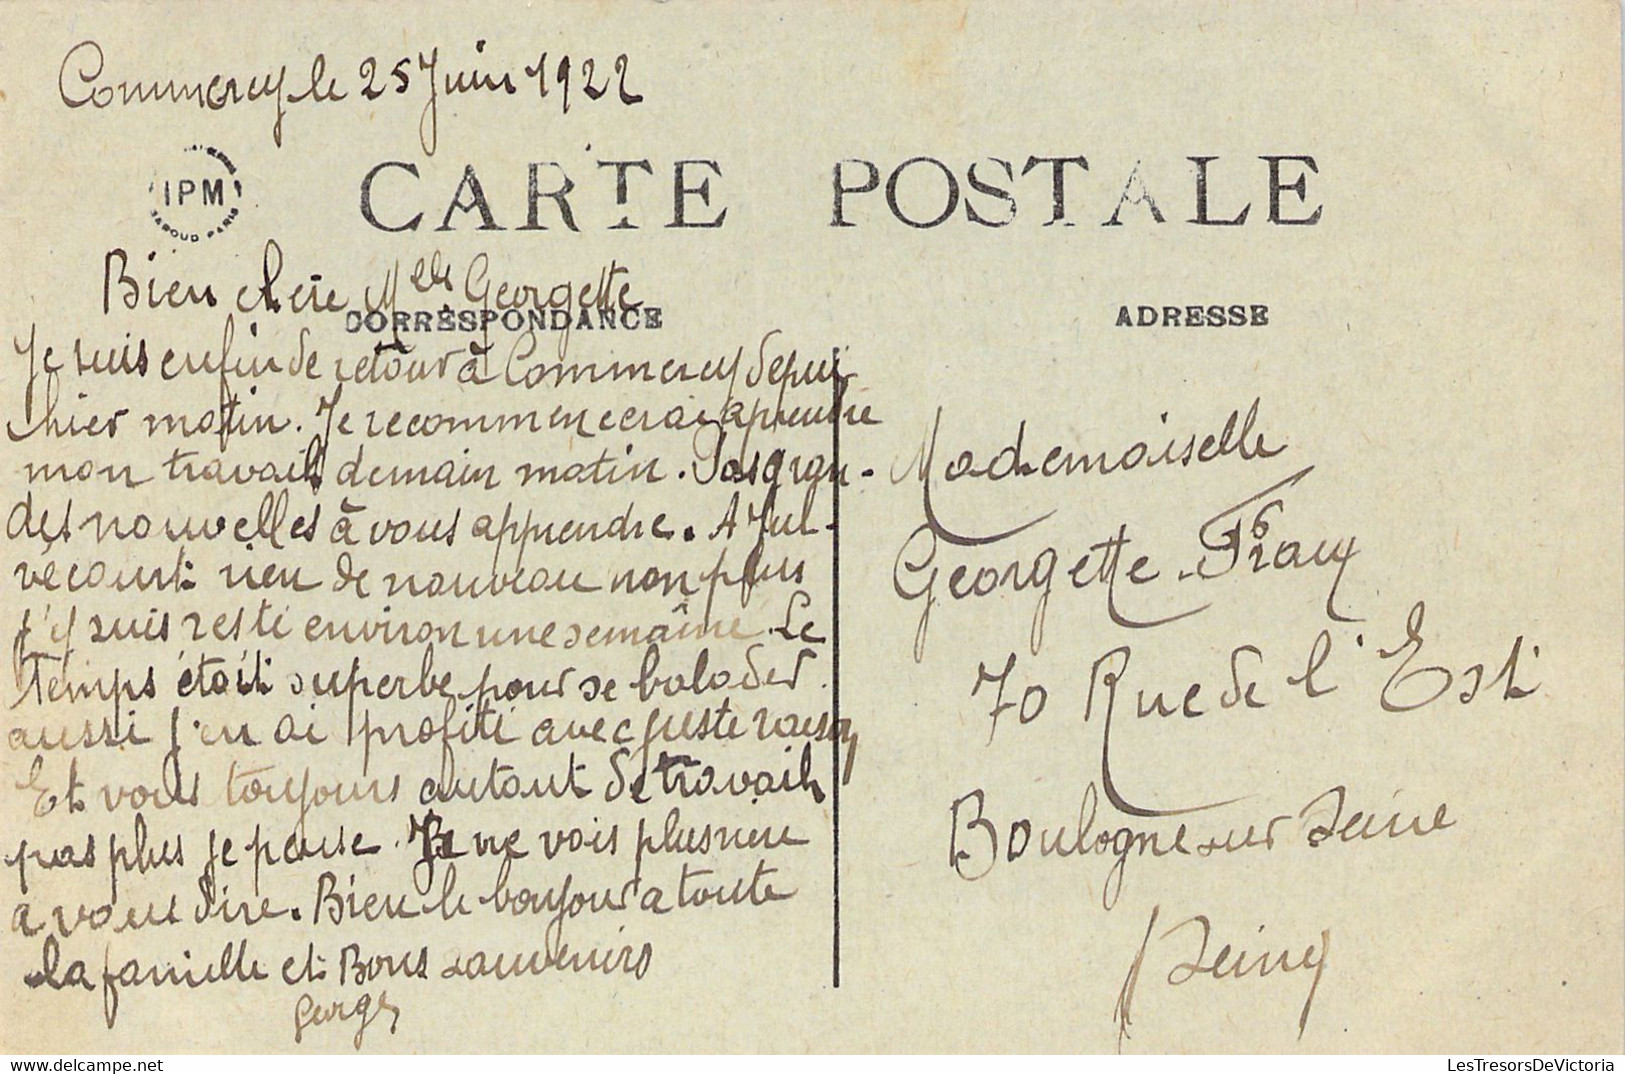 Commercy le 25 Juin 1922
IPM
PARIS
CARTE POSTALE
Bien chère Mlle Georgette
CORRESPONDANCE
Je suis enfin de retour à Commercy depuis
hier matin. Je recommencerai aprendre
mon travail demain matin. Pas gran-
des nouvelles à vous apprendre. A Jul-
vécourt rien de nouveau non plus
j'y suis resté environ une semaine. Le
Temps était superbe pour se balader
aussi j'en ai profité avec juste raison
Et vous toujours autant de travail
pas plus je pense. Je ne vois plus rien
a vous dire. Bien le bonjour a toute
la famille et Bons souvenirs
Georges
ADRESSE
Mademoiselle
Georgette
70 Rue de l'Est
Boulogne sur Seine
(Seine)
LesTresorsDeVictoria